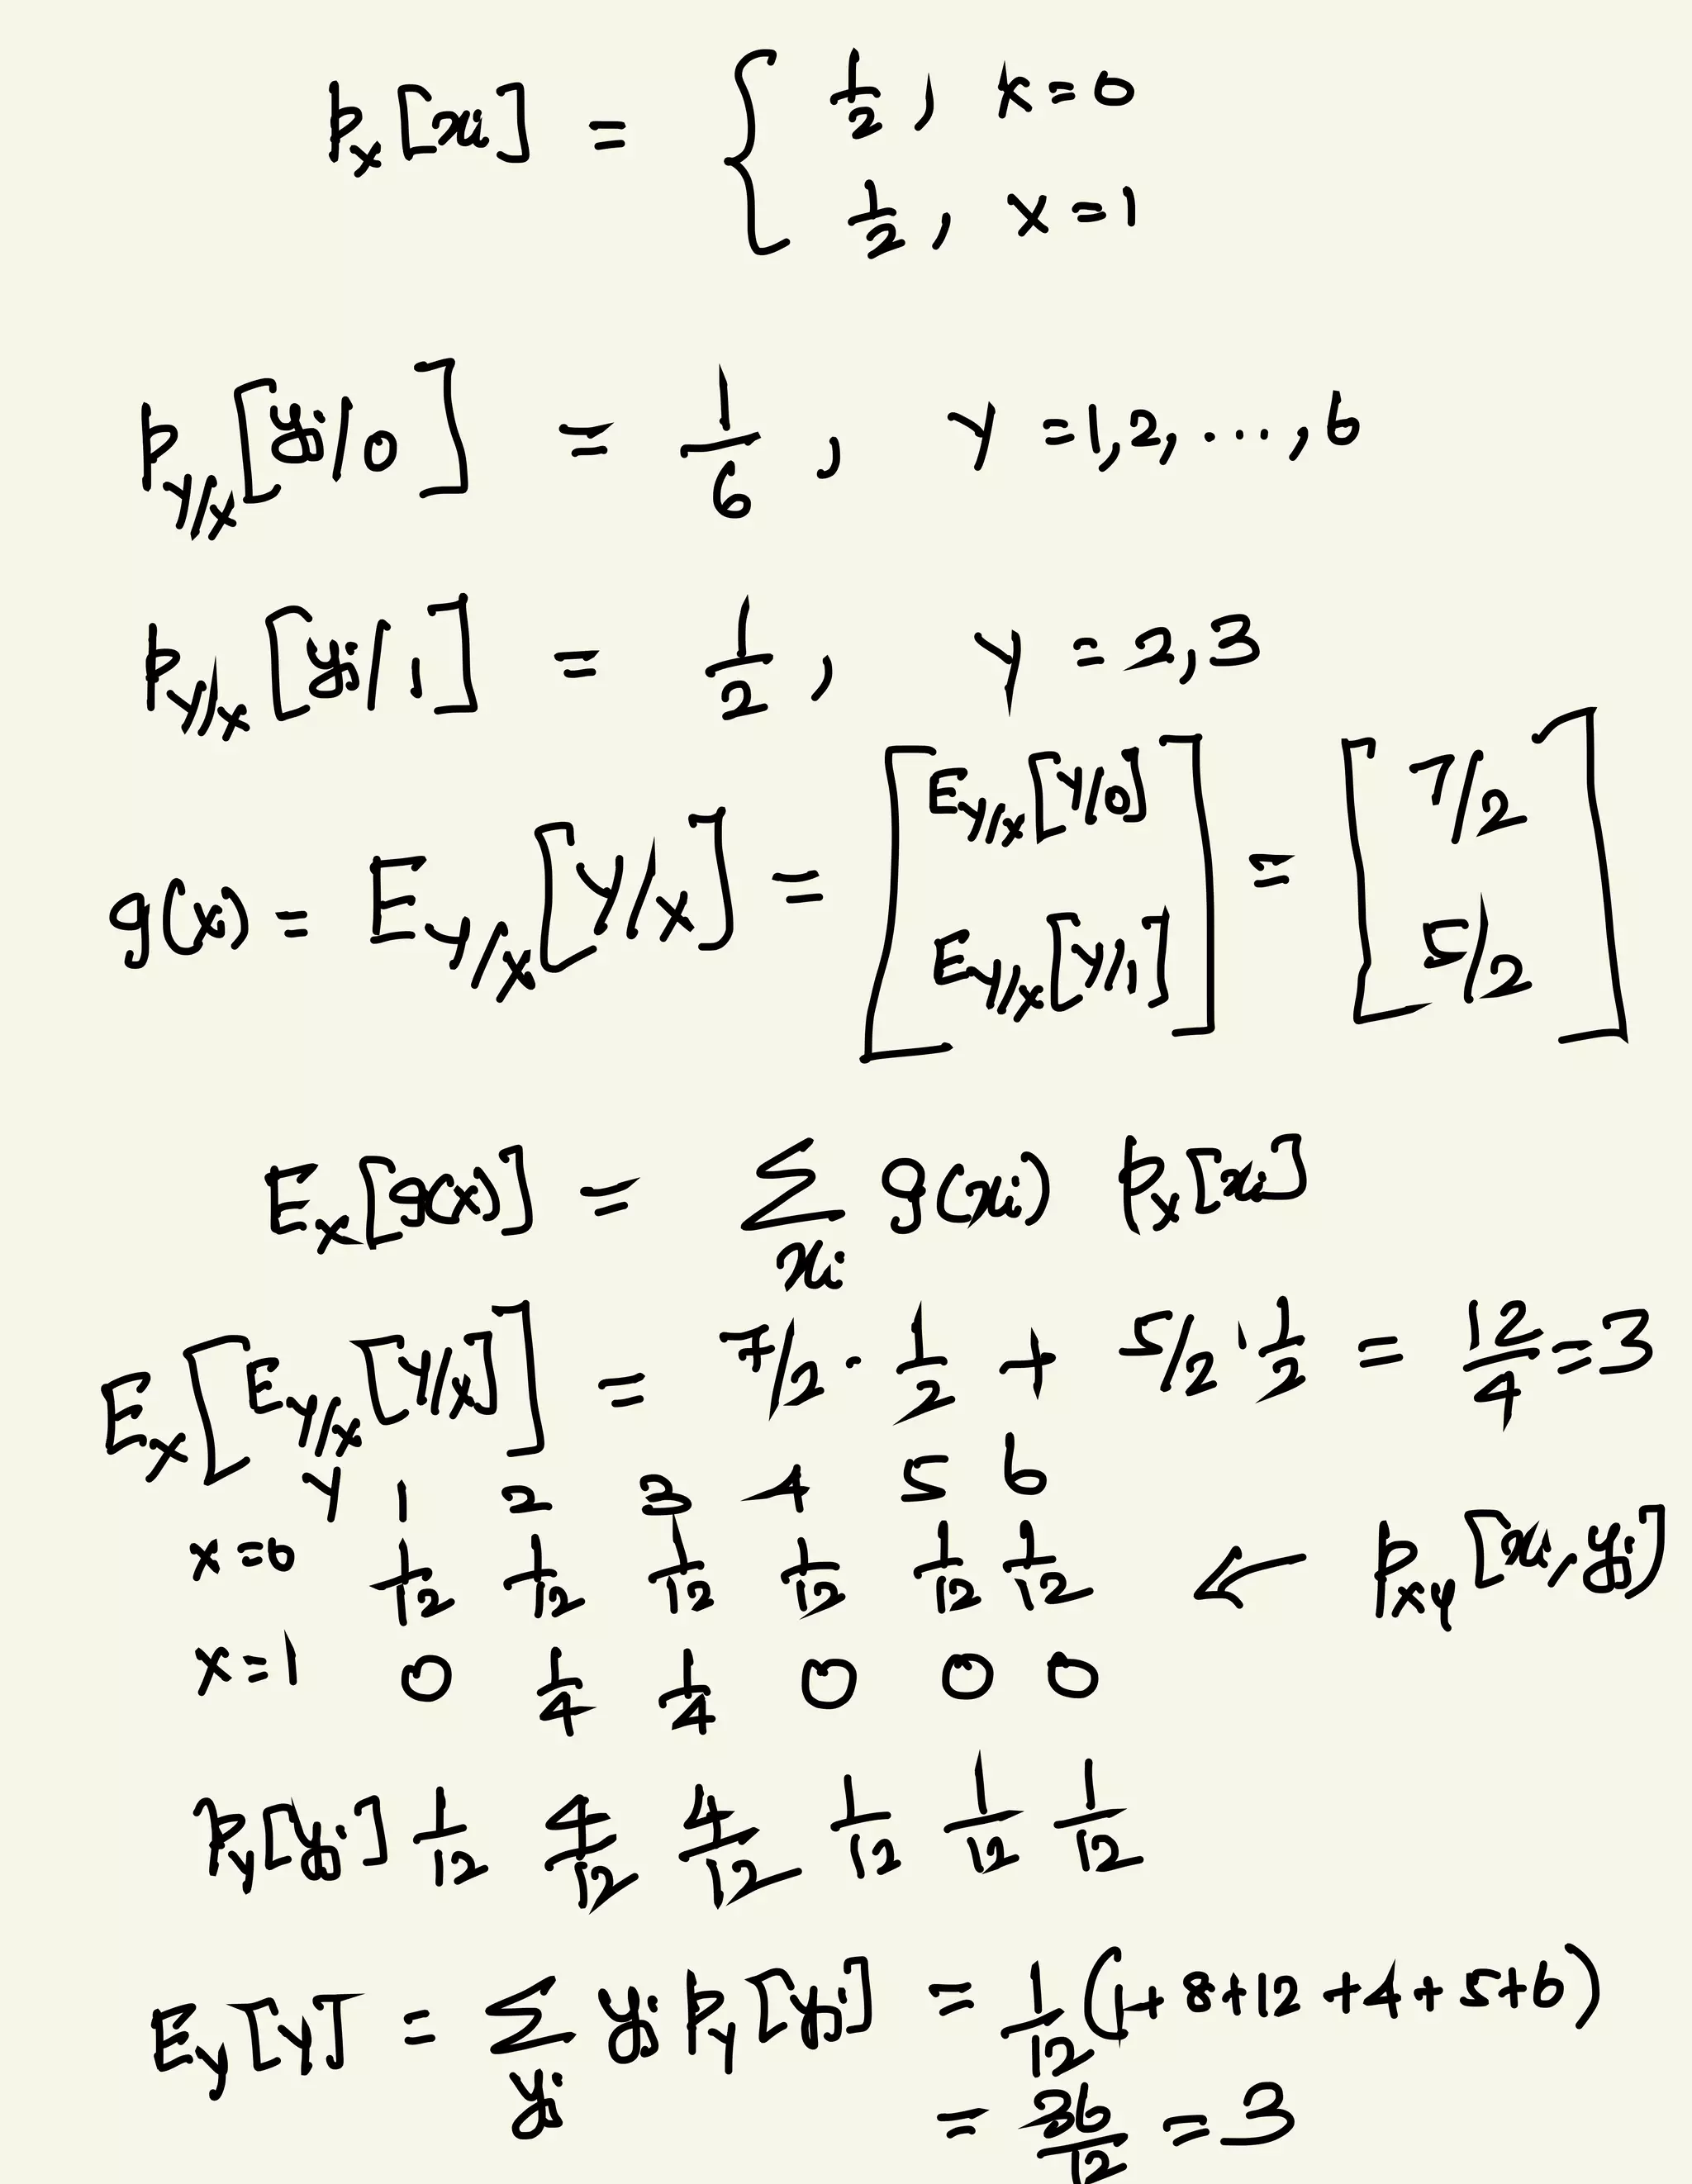 p_X[x_i] = { 1/2, k=0
1/2, x=1
p_{Y/X}[y_j/0] = 1/6, Y=1,2,...,6
p_{Y/X}[y_j/1] = 1/2, Y=2,3
g(x) = E_{Y/X}[Y/X] = [E_{Y/X}[Y/0] E_{Y/X}[Y/1]] = [7/2 5/2]
E_X[g(x)] = Σ_{x_i} g(x_i) p_X[x_i]
E_X[E_{Y/X}[Y/X]] = 7/2 · 1/2 + 5/2 · 1/2 = 12/4 = 3
Y 1 2 3 4 5 6
x=0 1/12 1/12 1/12 1/12 1/12 1/12 ← p_{XY}[x_i, y_j]
x=1 0 1/4 1/4 0 0 0
p_Y[y_j] 1/12 4/12 4/12 1/12 1/12 1/12
E_Y[Y] = Σ_{y_j} y_j p_Y[y_j] = 1/12 (1+8+12+4+5+6)
= 36/12 = 3